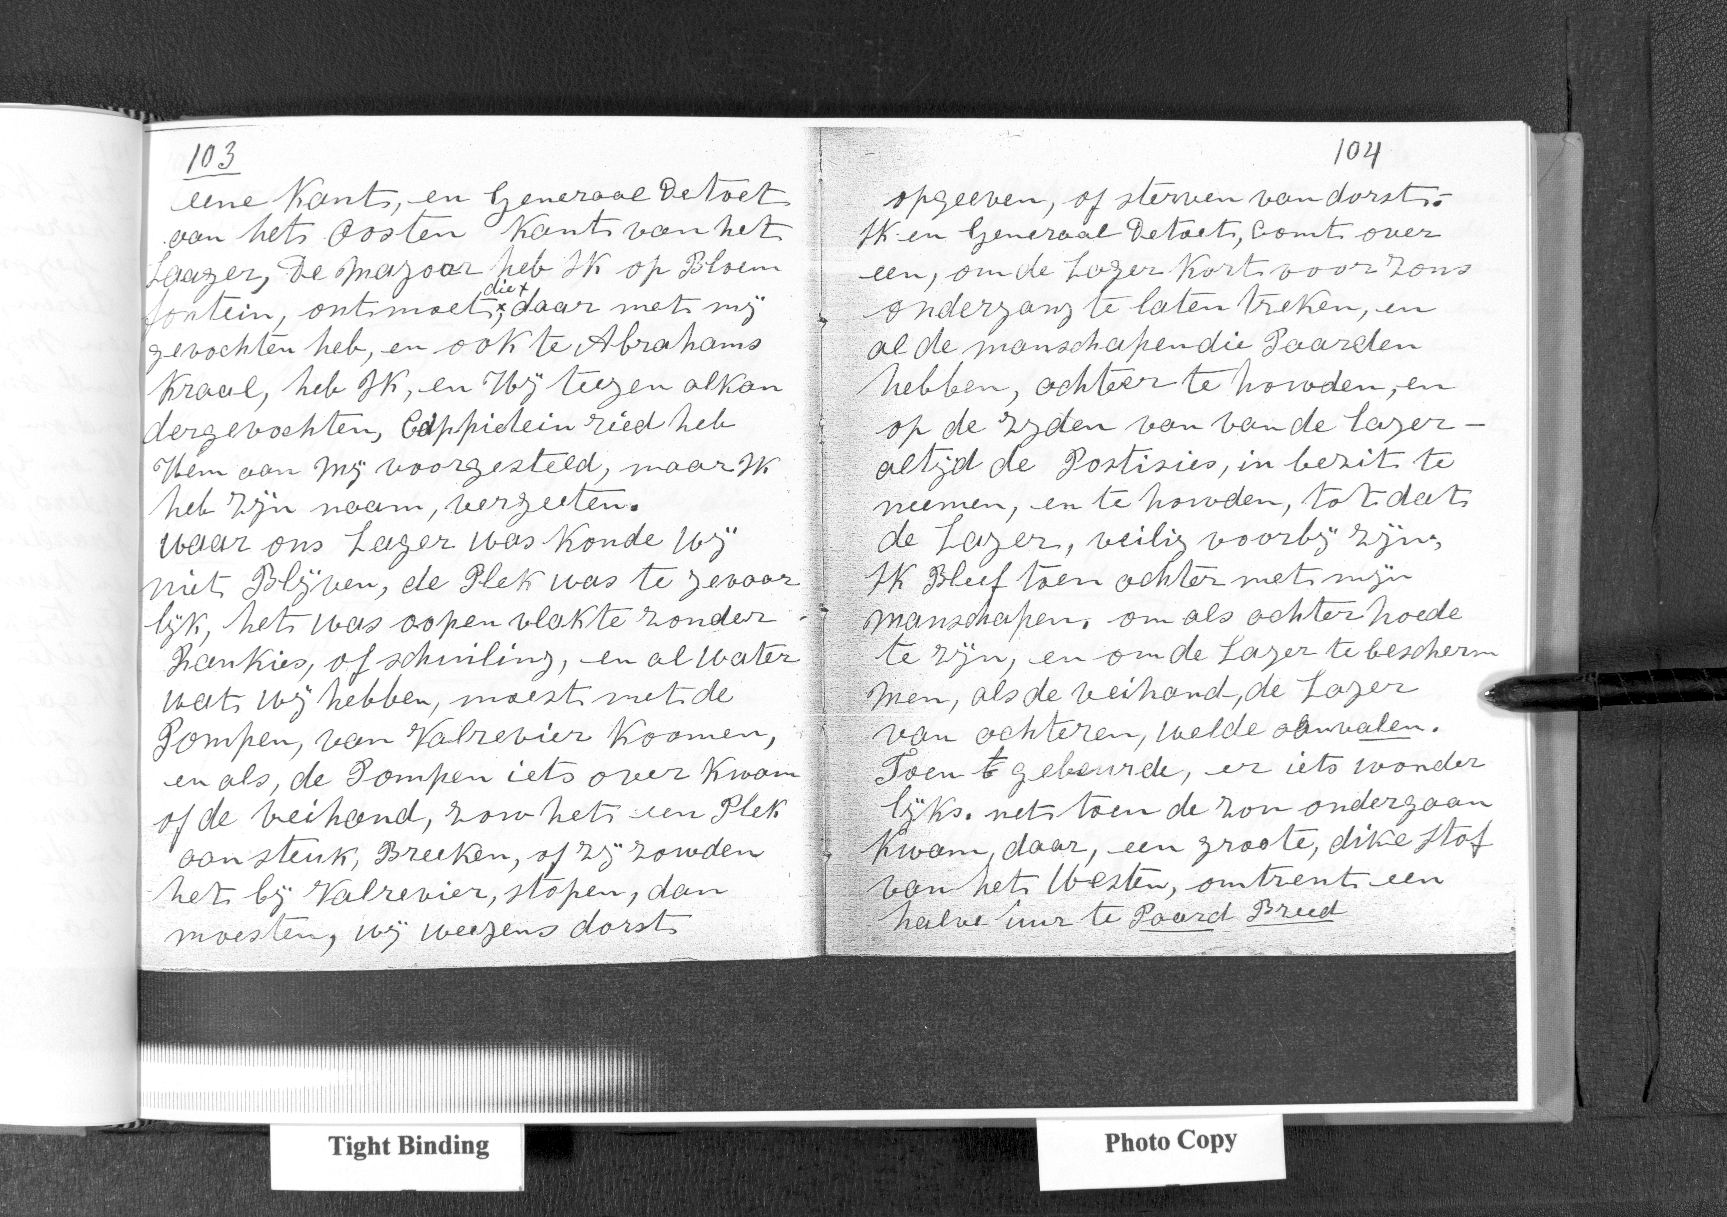 103
eene Kant, en Generaal Detoet
aan het Oosten Kant van het
Laager, De Majoor heb IK op Bloem
fontein, ontmoet, die daar met mij
gevochten heb, en ook te Abrahams
Kraal, heb IK, en Hij teegen alkan
dergevochten, Cappietein ried heb
Hem aan Mij voorgesteld, maar IK
heb zijn naam, vergeeten.
Waar ons Lager was Konde Wij
niet Blijven, de Plek was te gevaar
lijk, het was oopen vlakte zonder
Rankies, of schuiling, en al Water
wat wij hebben, moest met de
Pompen, van Valrevier Koomen,
en als, de Pompen iets over Kwam
of de veihand, zow het een Plek
aan steuk, Breeken, of zij zowden
het bij Valrevier, stopen, dan
moesten, wij weegens dorst
104
opgeeven, of sterven van dorst.-
IK en Generaal Detoet, Comt over
een, om de Lager Kort voor Zons
ondergang te laten treken, en
al de manschapen die Paarden
hebben, achteer te howden, en
op de zyden van van de lager-
altijd de Postisies, in bezit te
neemen, en te howden, tot dat
de Lager, veilig voorbij zijn,
IK Bleef toen achter met mijn
manschapen. om als achterhoede
te zijn, en om de Lager te bescherm
men, als de veihand, de Lager
van achteren, welde aanvalen.
Toen t gebeurde, er iets wonder
lijks. net toen de zon ondergaan
Kwam, daar, een groote, dike Stof
van het Westen, omtrent een
halve uur te Paard Breed
Tight Binding
Photo Copy